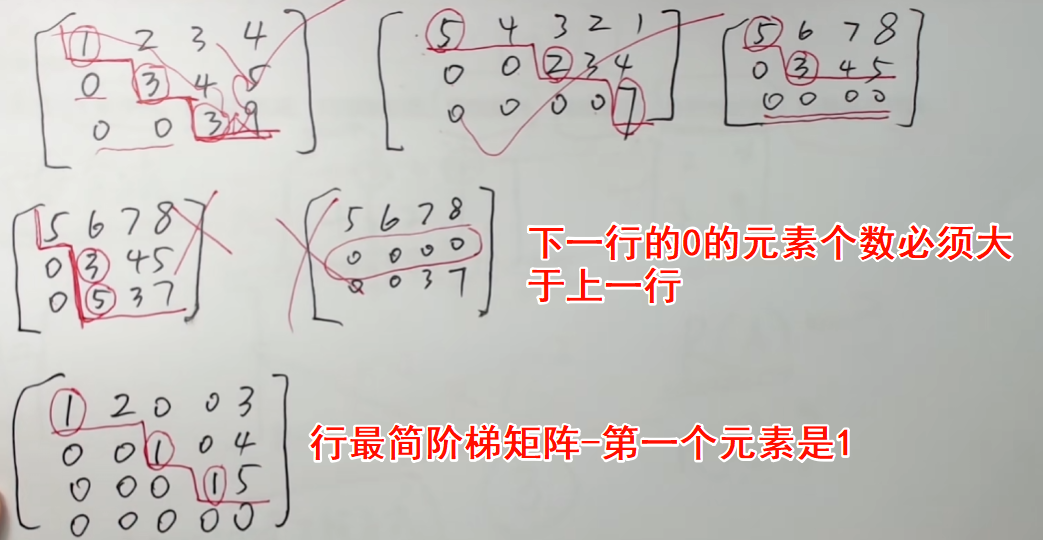 1 2 3 4
0 3 4 5
0 0 3 9
5 4 3 2 1
0 0 2 3 4
0 0 0 0 7
5 6 7 8
0 3 4 5
0 0 0 0
5 6 7 8
0 3 4 5
0 5 3 7
5 6 7 8
0 0 0 0
0 0 3 7
下一行的0的元素个数必须大
于上一行
1 2 0 0 3
0 0 1 0 4
0 0 0 1 5
0 0 0 0 0
行最简阶梯矩阵-第一个元素是1